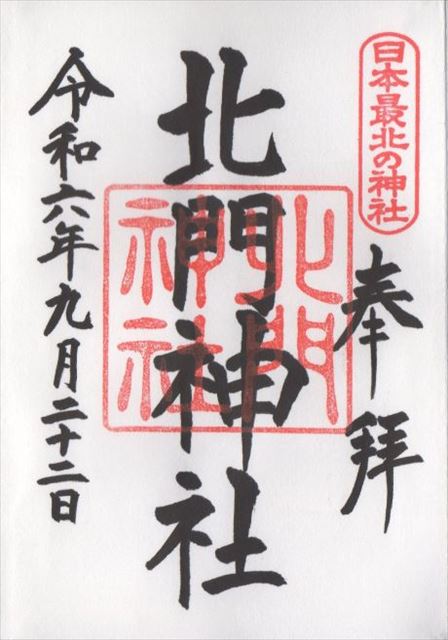 日本最北の神社
奉拝
北門神社
北門
神社
令和六年九月二十二日